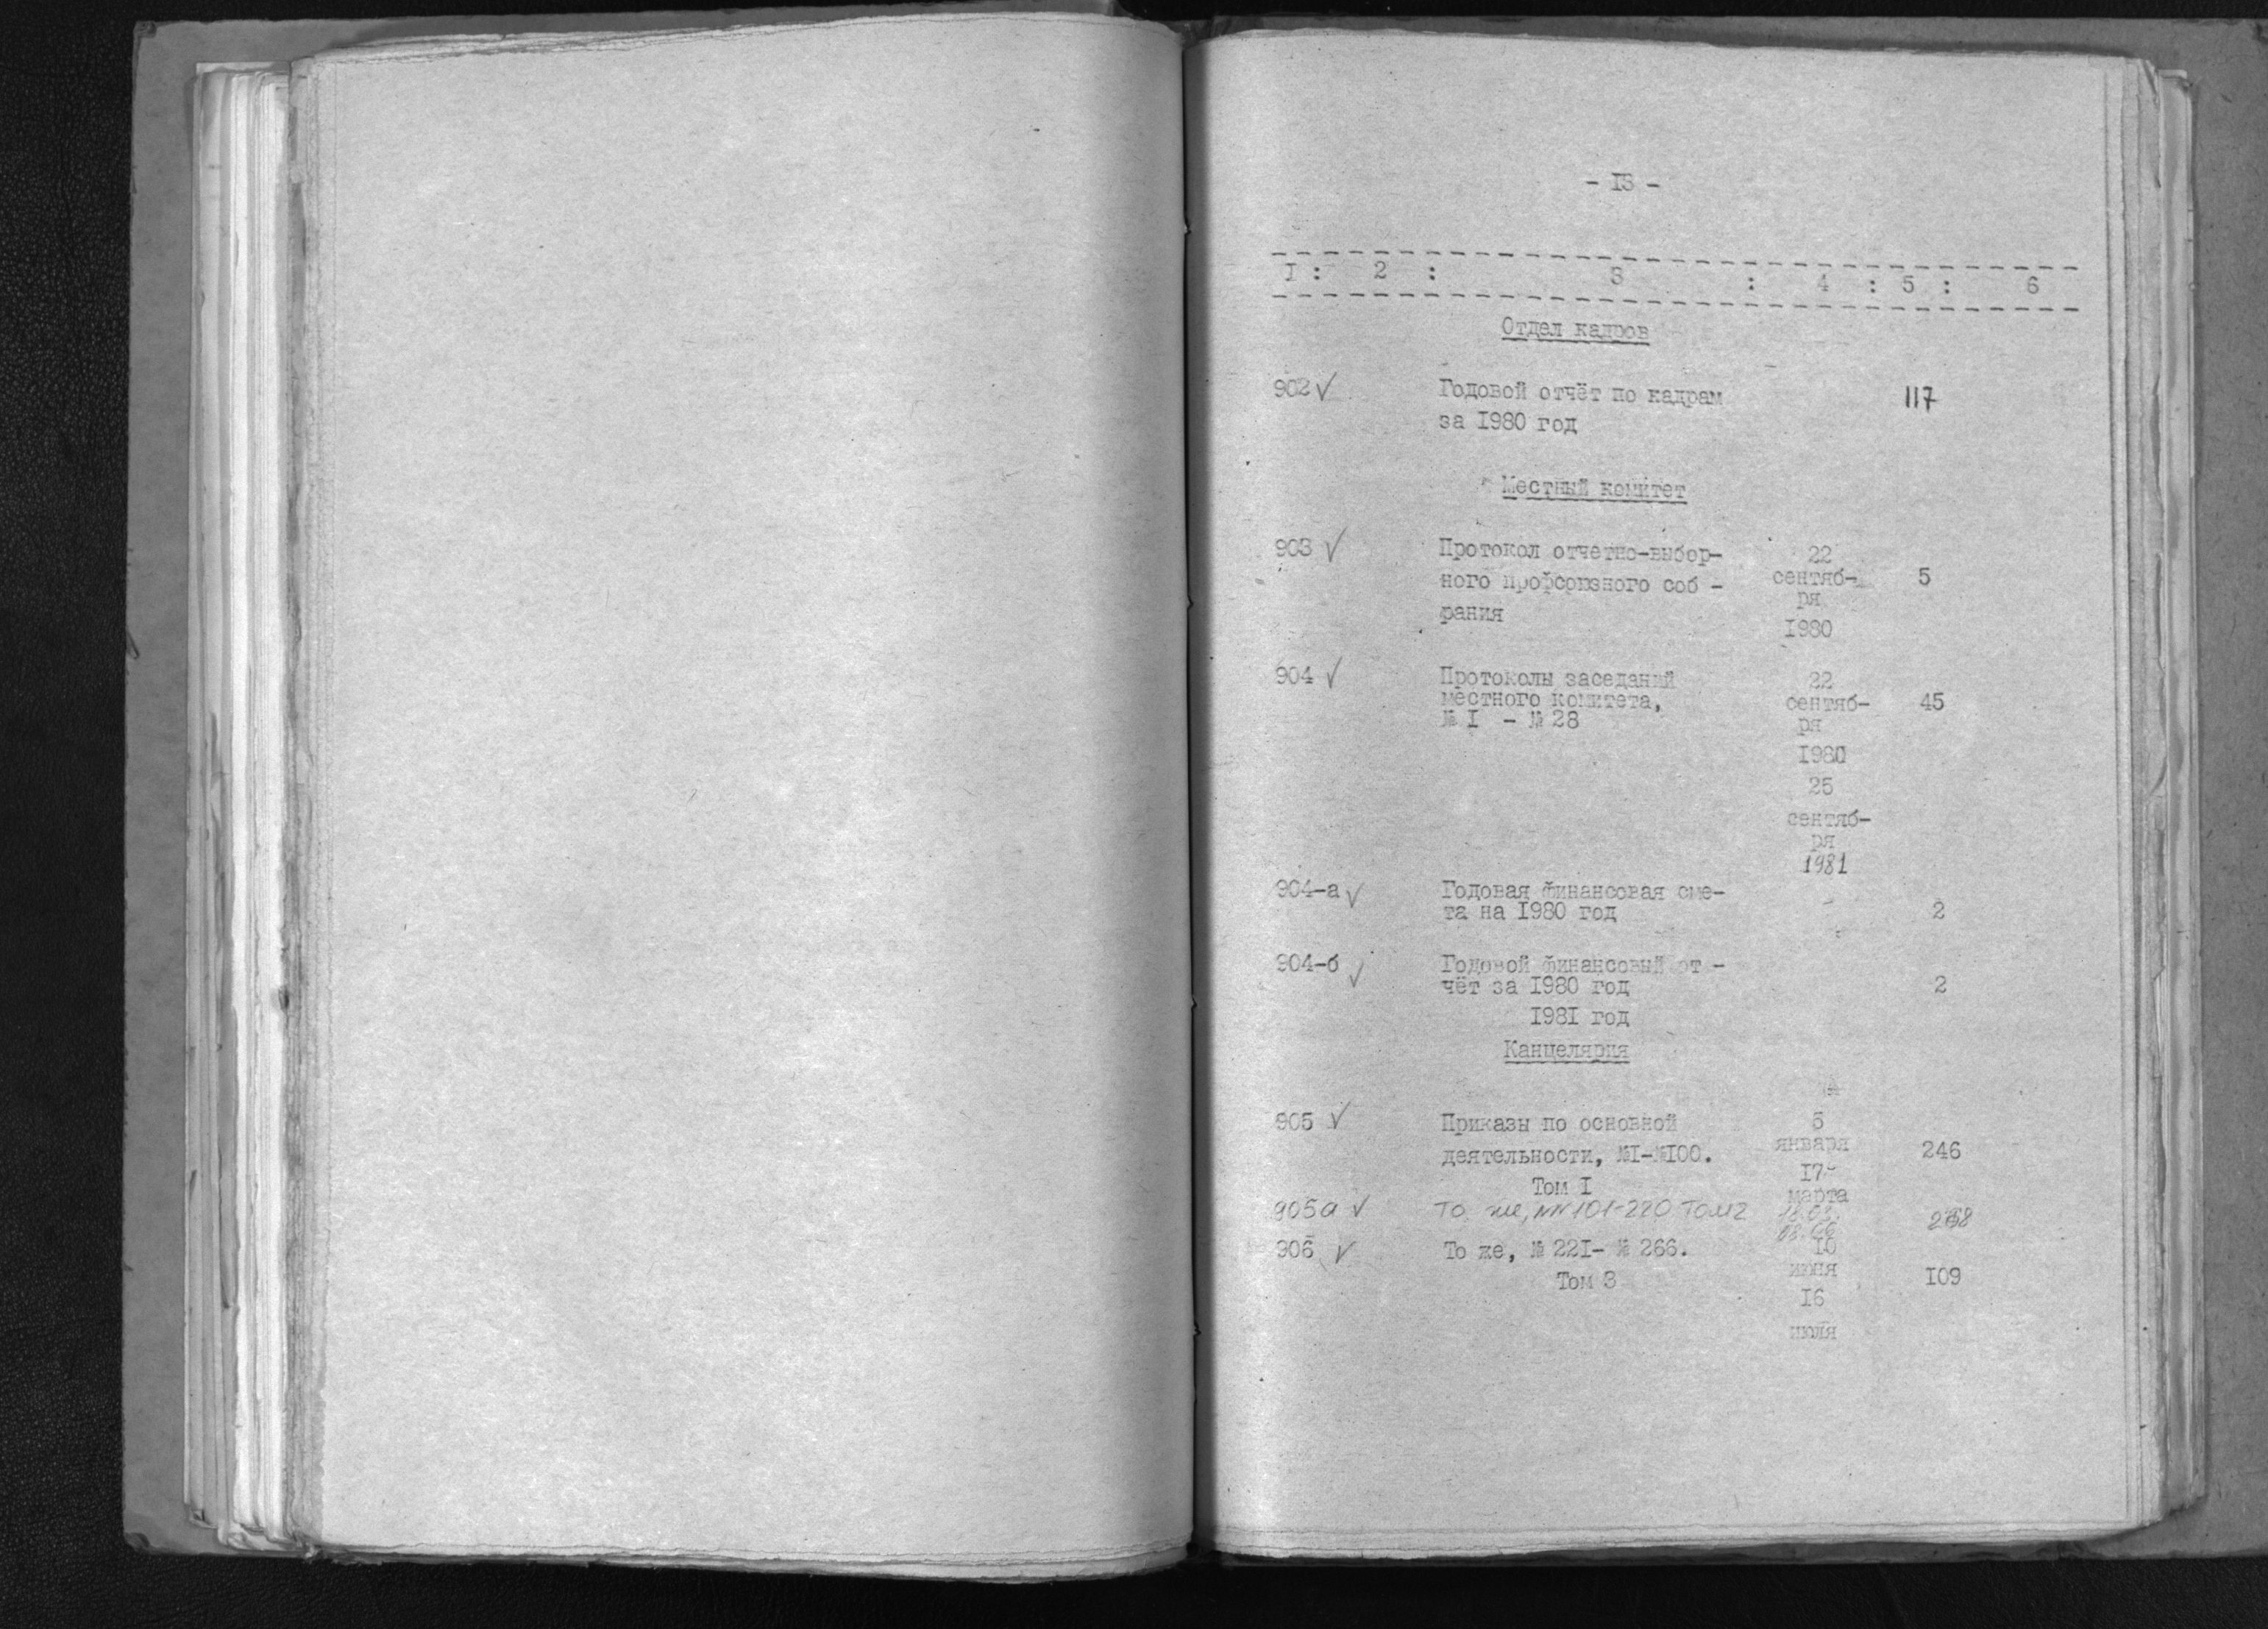 - 13 -
I : 2 : 3 : 4 : 5 : 6
Отдел кадров
902 ✓ Годовой отчёт по кадрам 117
за 1980 год
Местный комитет
903 ✓ Протокол отчетно-выбор- 22
ного профсоюзного соб - сентяб- 5
рания ря
1980
904 ✓ Протоколы заседаний 22
местного комитета, сентяб- 45
№ I - № 28 ря
1980
25
сентяб-
ря
1981
904-а ✓ Годовая финансовая сме-
та на 1980 год 2
904-б ✓ Годовой финансовый от -
чёт за 1980 год 2
1981 год
Канцелярия
905 ✓ Приказы по основной 5
деятельности, №I-№100. января 246
Том I 17
марта
905а ✓ То же, №№ 101-220 Том 2
906 ✓ То же, № 221- № 266. 10
Том 3 июня 109
16
июля